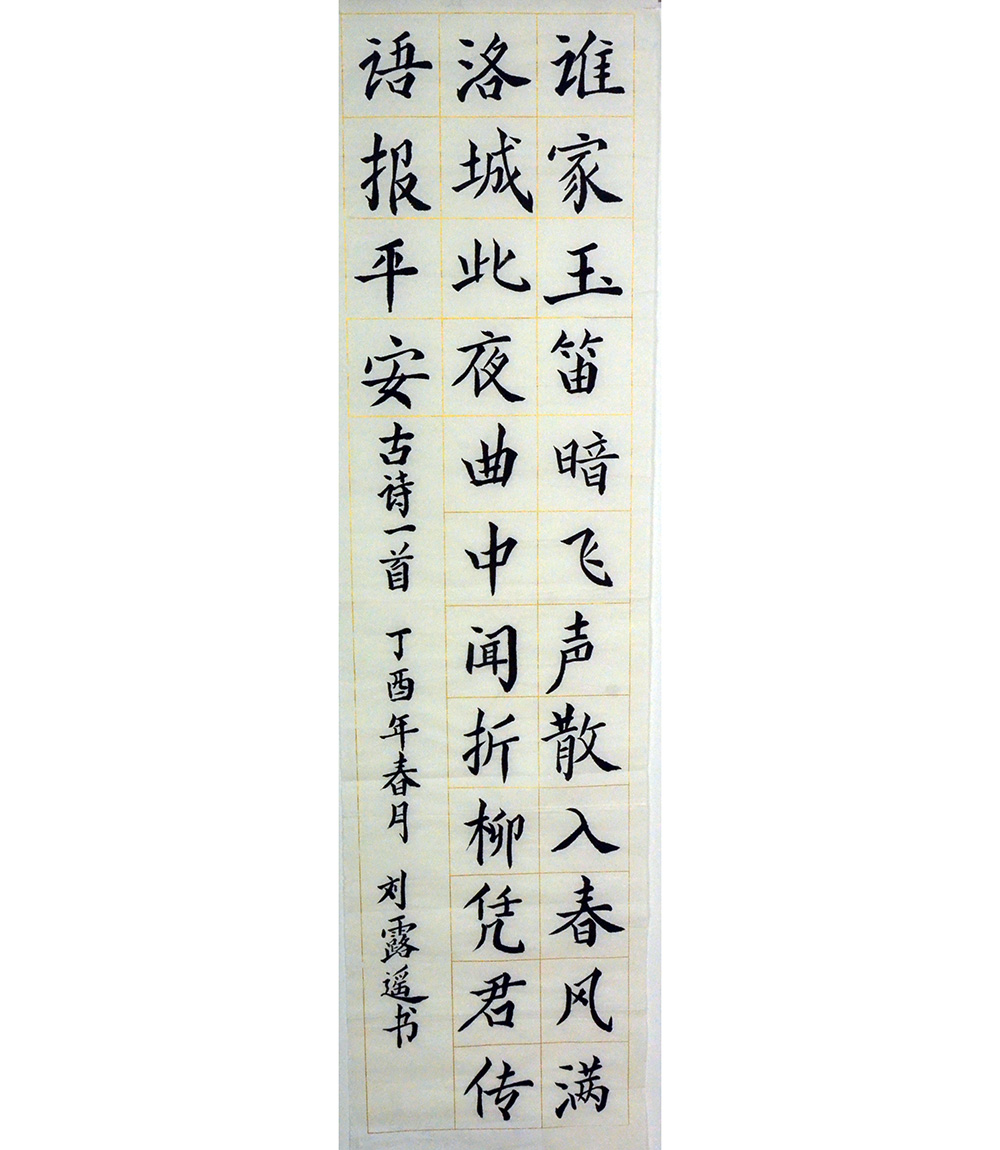 谁家玉笛暗飞声散入春风满
洛城此夜曲中闻折柳凭君传
语报平安
古诗一首 丁酉年春月 刘露遥书